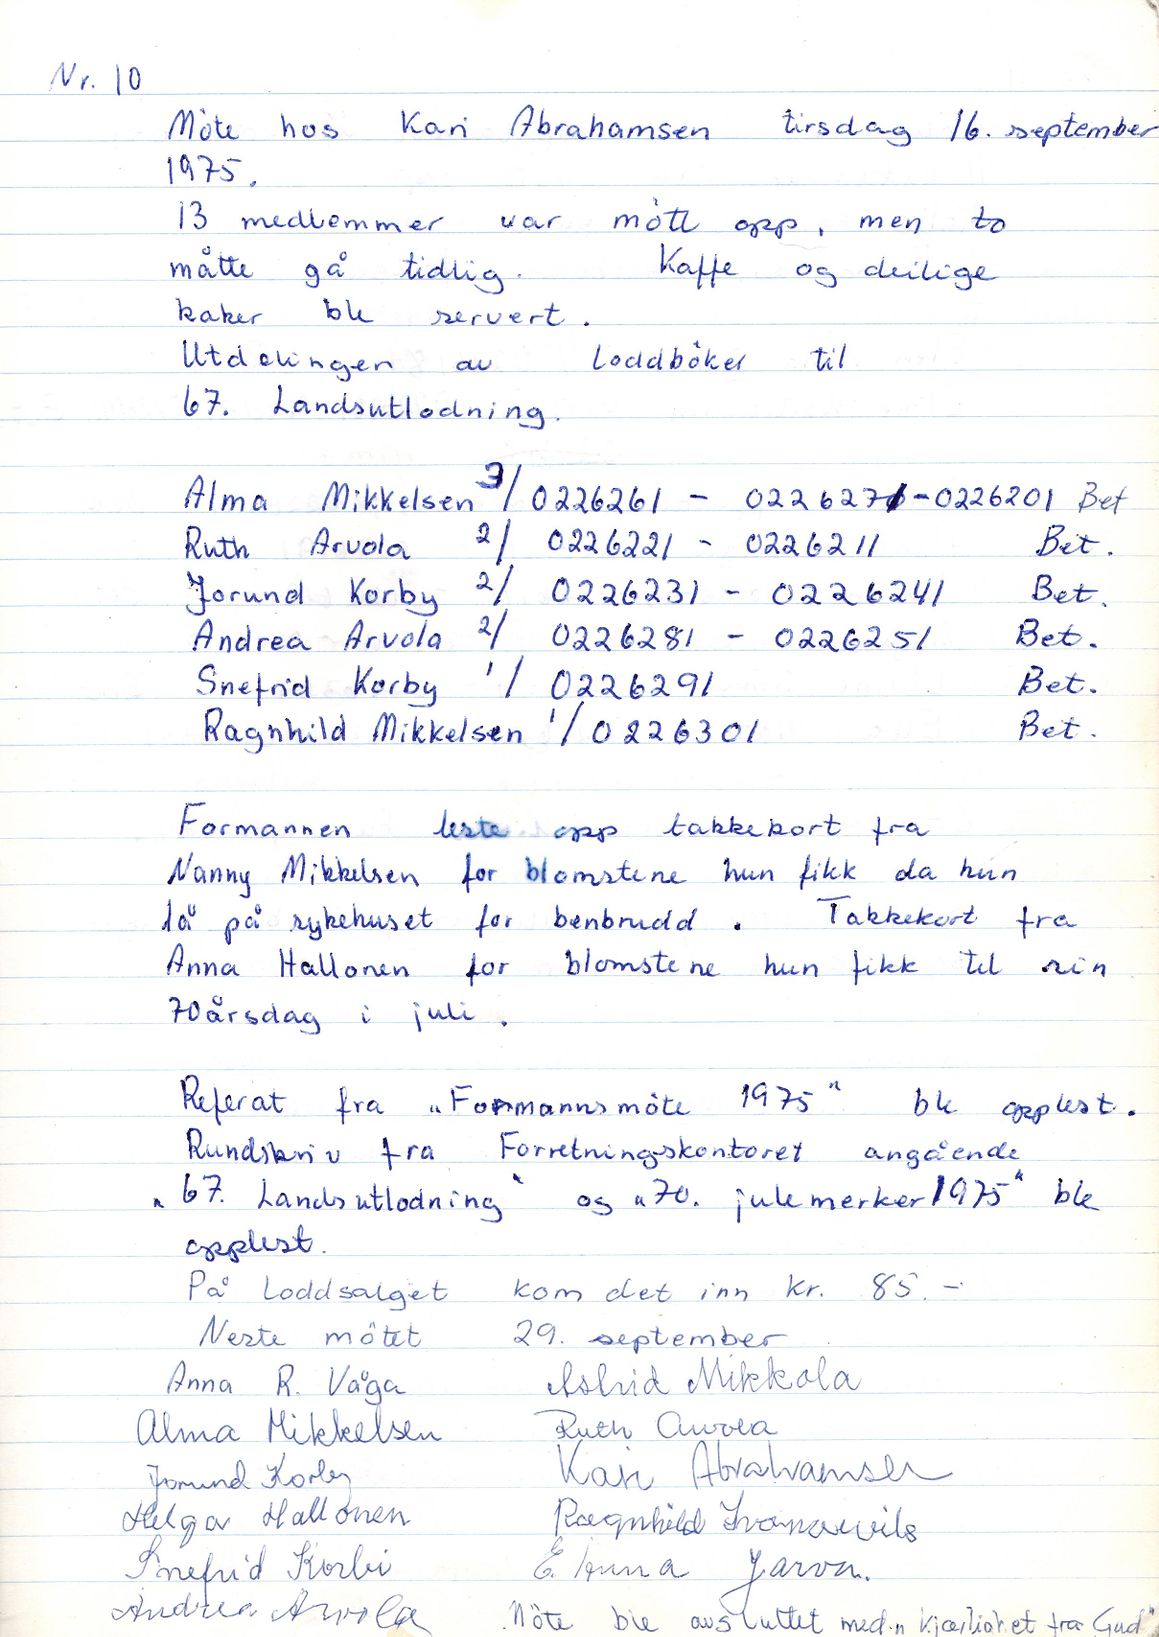 Nr. 10
Möte hos Kari Abrahamsen tirsdag 16. september
1975.
13 medlemmer var mött opp, men to
måtte gå tidlig. Kaffe og deilige
kaker ble servert.
Utdelingen av Loddböker til
67. Landsutlodning.
Alma Mikkelsen 3/ 0226261 - 0226271 - 0226201 Bet
Ruth Arvola 2/ 0226221 - 0226211 Bet.
Jorund Korby 2/ 0226231 - 0226241 Bet.
Andrea Arvola 2/ 0226281 - 0226251 Bet.
Snefrid Korby 1/ 0226291 Bet.
Ragnhild Mikkelsen 1/ 0226301 Bet.
Formannen leste opp takkekort fra
Nanny Mikkelsen for blomstene hun fikk da hun
lå på sykehuset for benbrudd. Takkekort fra
Anna Hallonen for blomstene hun fikk til sin
70årsdag i juli.
Referat fra „Formannsmöte 1975" ble opplest.
Rundskriv fra Forretningskontoret angående
„67. Landsutlodning" og „70. julemerker 1975" ble
opplest.
På Loddsalget kom det inn kr. 85.-
Neste mötet 29. september
Anna R. Våga Astrid Mikkola
Alma Mikkelsen Ruth Arvola
Jorund Korby Kari Abrahamsen
Helga Hallonen Ragnhild
Snefrid Korbi E. Anna Jarva.
Andrea Arvola Möte ble avsluttet med „Kjærlighet fra Gud"